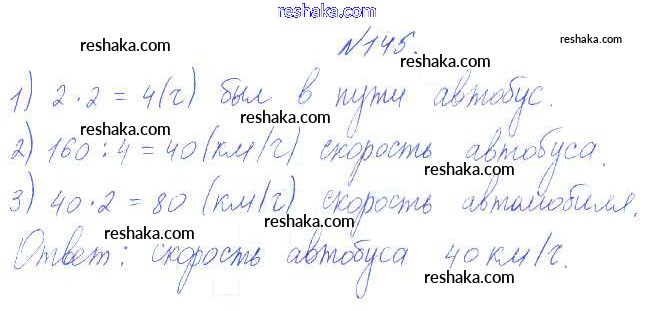 reshaka.com
№145.
1) 2·2=4(ч) был в пути автобус.
2) 160:4=40(км/ч) скорость автобуса.
3) 40·2=80 (км/ч) скорость автомобиля.
Ответ: скорость автобуса 40 км/ч.
reshaka.com
reshaka.com
reshaka.com
reshaka.com
reshaka.com
reshaka.com
reshaka.com
reshaka.com
reshaka.com
reshaka.com
reshaka.com
reshaka.com